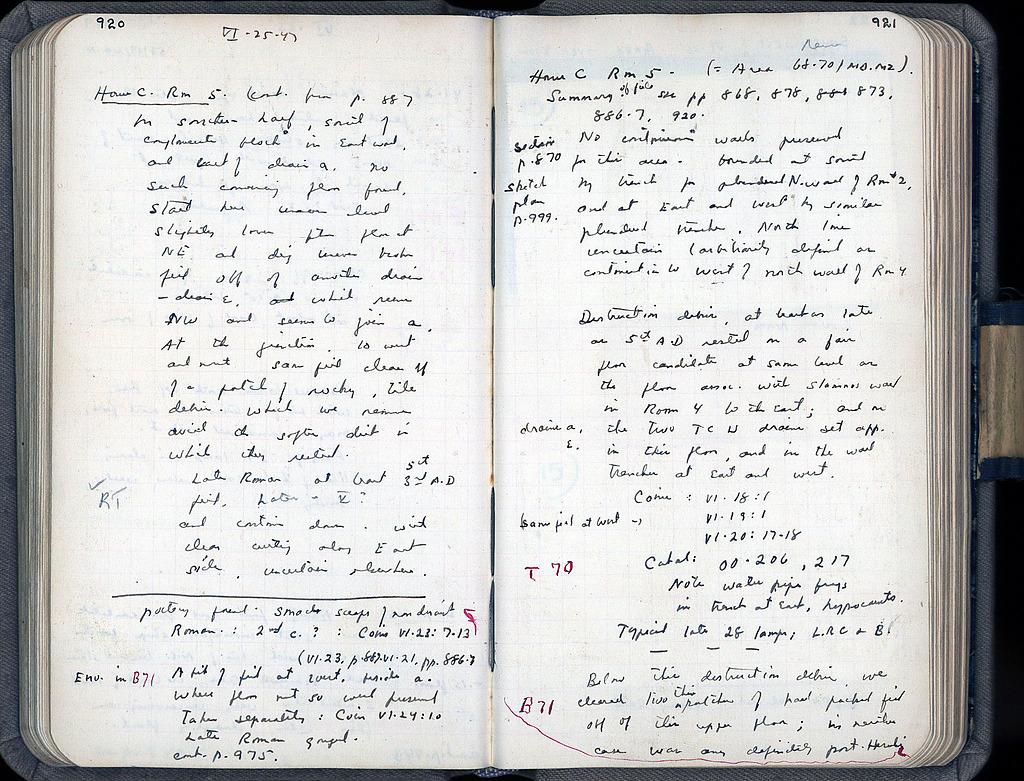 920
VI-25-47
House C. Rm 5. Cont. from p. 887
In southern half, south of
conglomerate block in East wall,
and east of drain a. no
such convincing floor found.
Start here uneven level
slightly lower than floor at
NE and dig brown
fill off of another drain
- drain E. which runs
NW and seems to join a.
At the junction, to west
same fill clean off
of a patch of rocky, tile
debris. which we remove
the softer dirt in
which they rested.
Late Roman at least 5th 3rd A.D
RT fill. Later - V?
and contin down. until
clear cutting along East
side, uncertain elsewhere.
pottery found. small scraps of nondescript
Roman : 2nd c. ? : Coins VI-23: 7-13
(VI-23, p. 887. VI-21, pp. 886-7
Env. in B71 A bit of fill at west, beside a.
where floor not so well preserved
Taken separately : Coin VI-24:10
Late Roman
cont. p. 975.
921
House C Rm 5 - (= Area 68-70/MD.MZ).
Summary of fills see pp 868, 878, 873,
886-7, 920.
section p. 870
No continuous walls preserved
for this area. bounded at south
sketch plan p. 999.
by trench for plundered N. wall of Rm 2,
and at East and west by similar
plundered trenches. North line
uncertain (arbitrarily defined as
continuation to west of north wall of Rm 4
Destruction debris, at least as late
as 5th A.D rested on a fair
floor candidate at same level as
the floor assoc. with Stamnos well
in Room 4 to the East; and on
drains a, E.
the two TC drains set app.
in this floor, and in the wall
trenches at East and west.
Coins : VI-18:1
Same fill at west → VI-19:1
VI-20: 17-18
T 70
Catal: 00-206, 217
Note water pipe frags
in trench at East, hypocausts.
Typical late 28 lamps; L.R.C & B!
Below this destruction debris, we
B71
cleared two thin patches of hard packed fill
off of this upper floor; in neither
case was any definitely post-Heruli